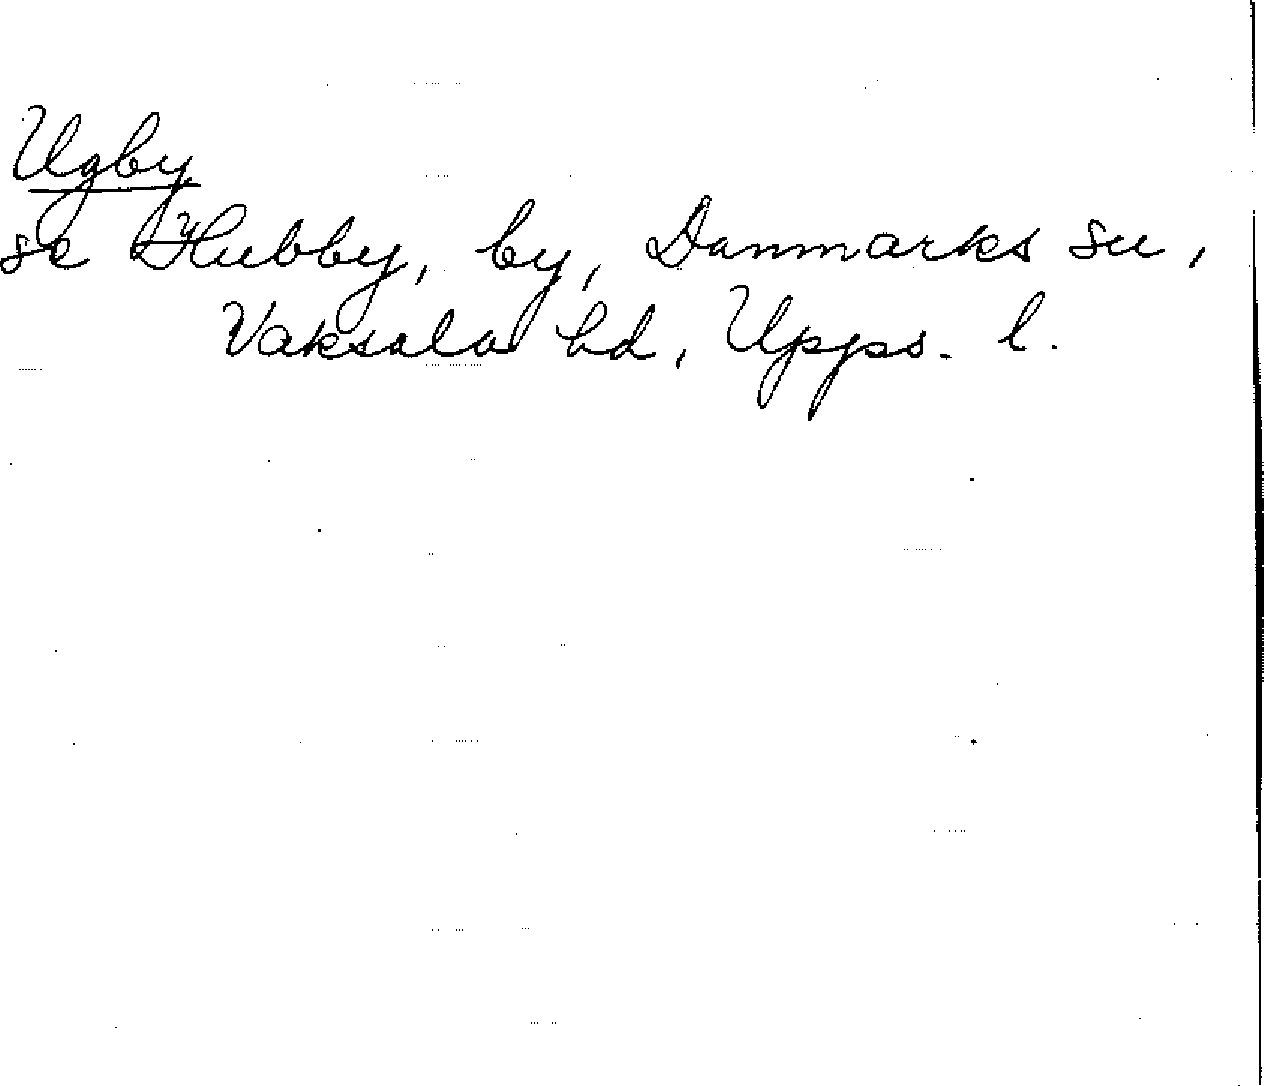 Ugby
se Hubby, by, Danmarks sn,
Vaksala hd, Upps. l.